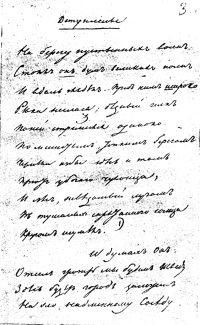 3
Вступление
На берегу пустынныхъ волнъ
Стоялъ онъ, думъ великихъ полнъ
И вдаль глядѣлъ. Предъ нимъ широко
Рѣка неслася; бѣдный челнъ
По ней стремился одиноко
По мшистымъ, топкимъ берегамъ
Чернѣли избы здѣсь и тамъ
Пріютъ убогаго чухонца;
И лѣсъ, невѣдомый лучамъ
Въ туманѣ спрятаннаго солнца
Кругомъ шумѣлъ.
И думалъ онъ
Отсель грозить мы будемъ Шведу
Здѣсь будетъ городъ заложенъ
На зло надменному Сосѣду